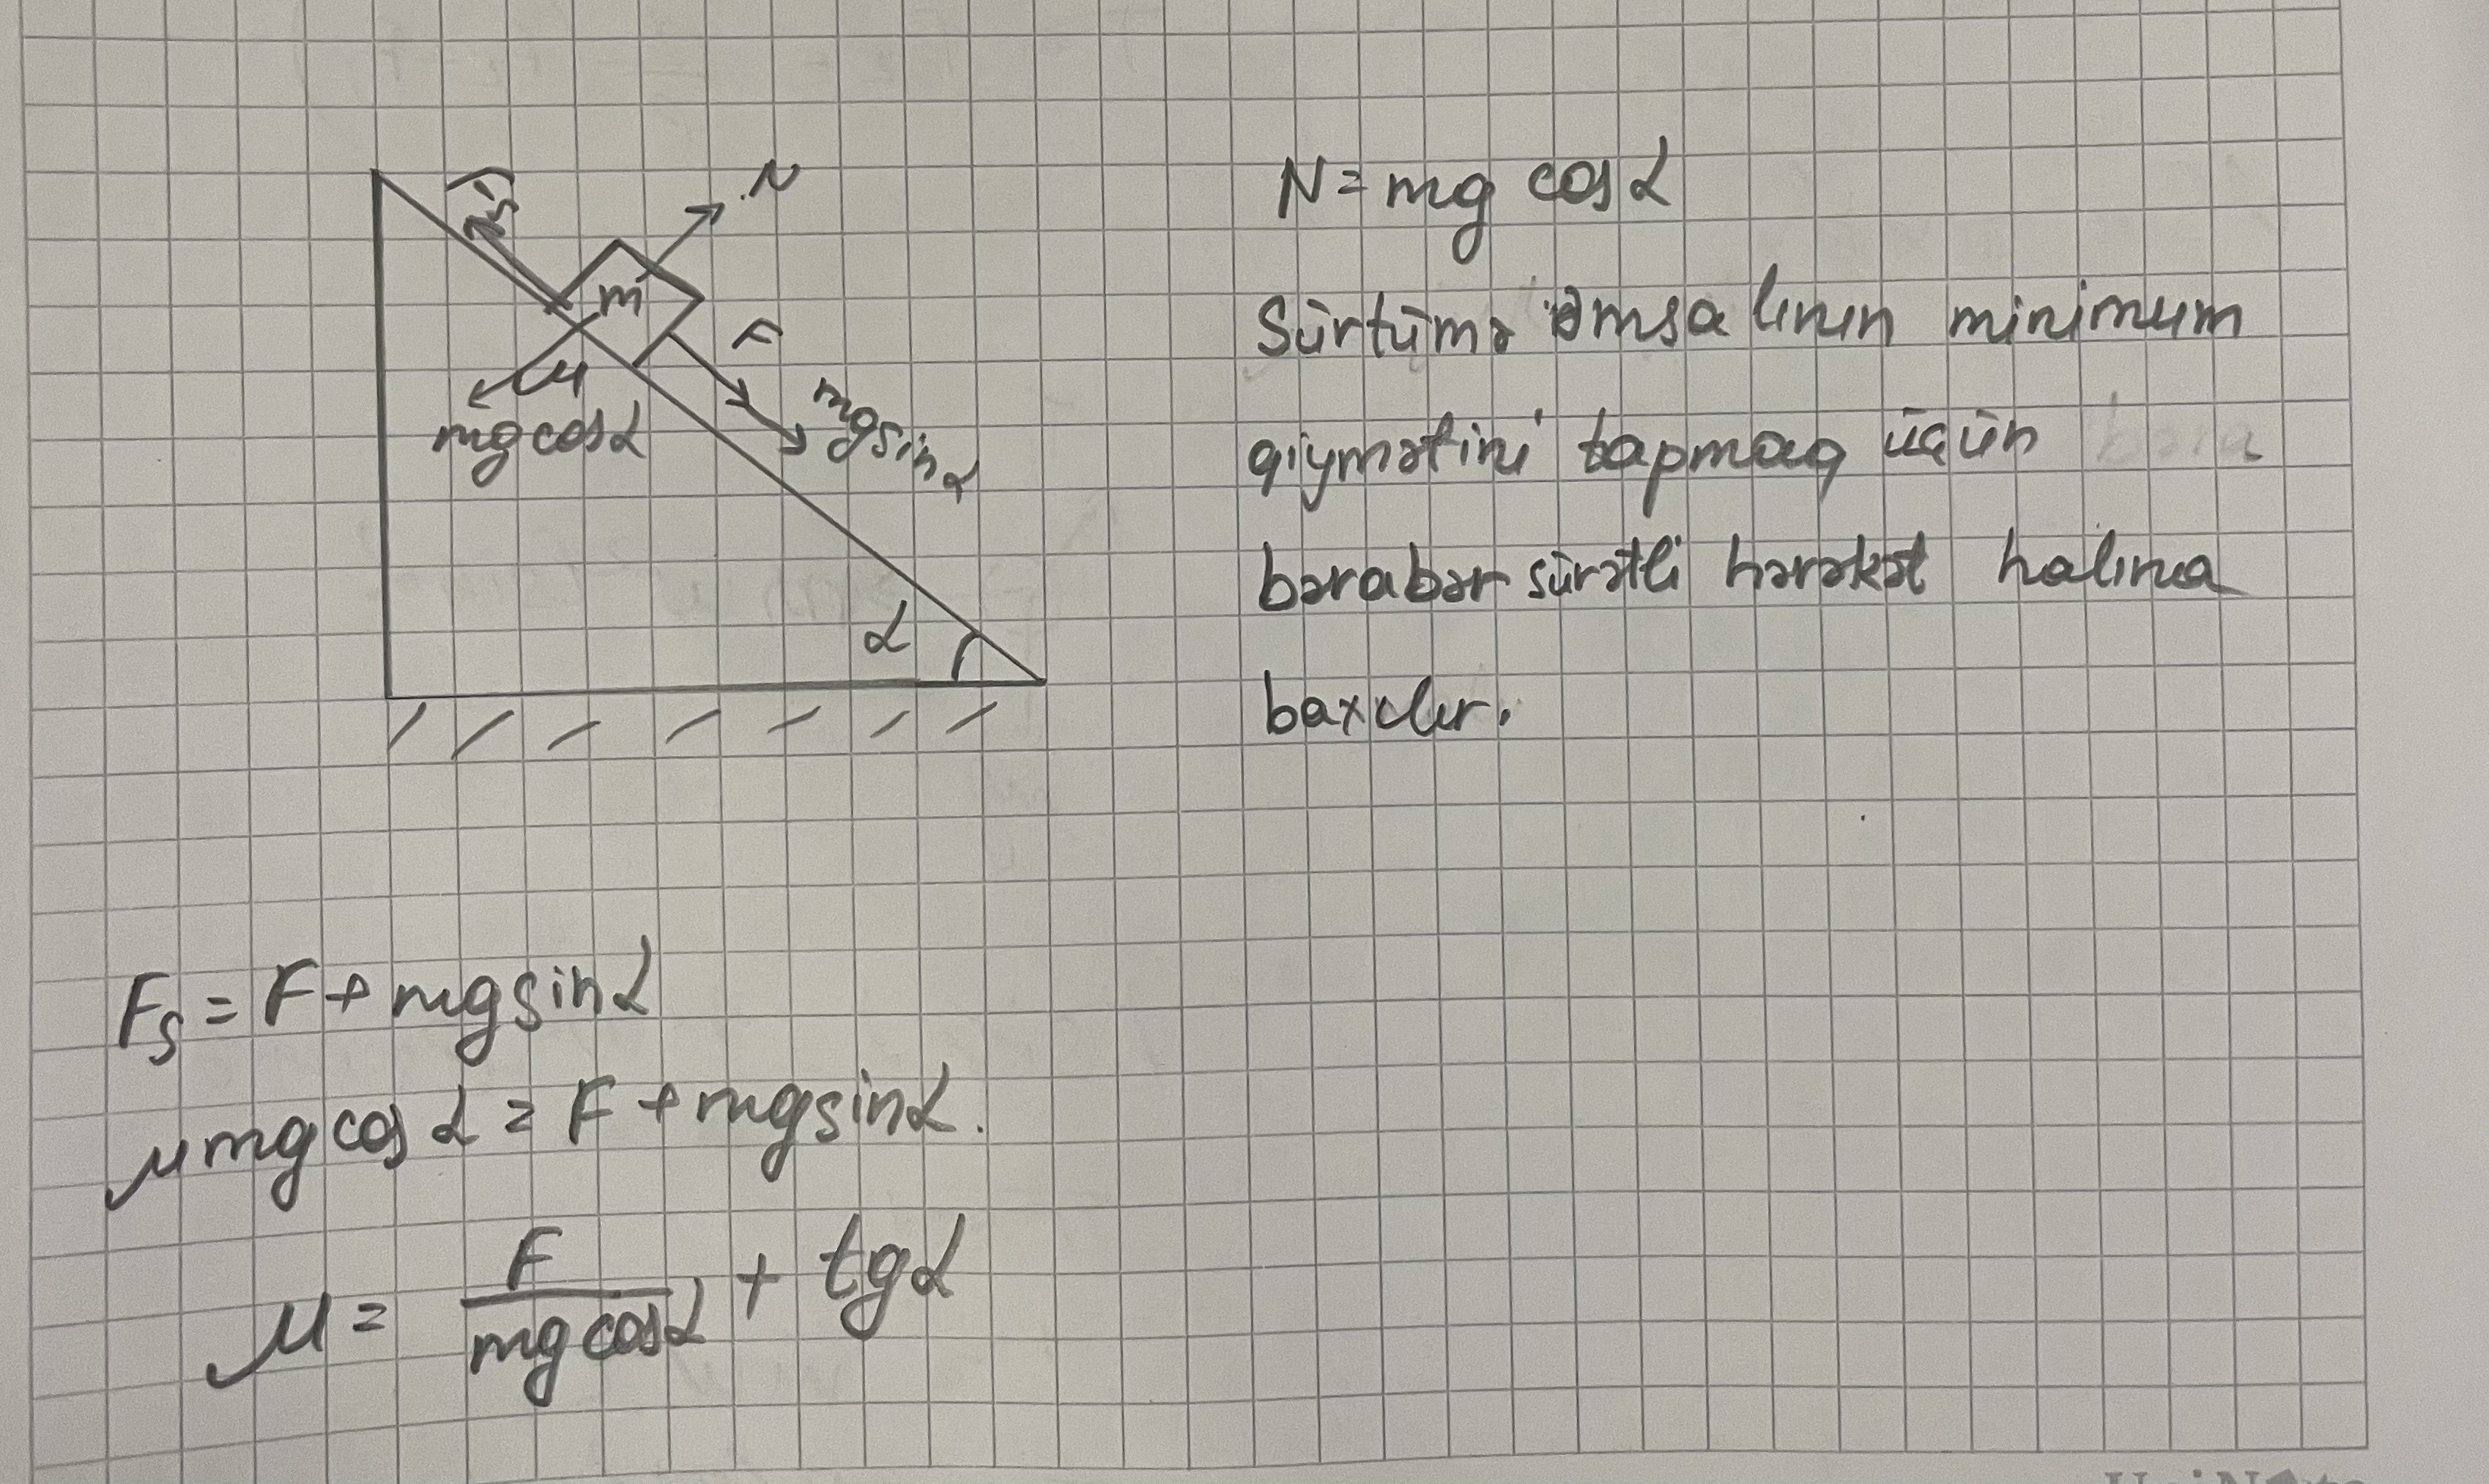 Fs
N
m
F
μ
mg cosα
mg sinα
α
N = mg cosα
Sürtümə əmsalının minimum
qiymətini tapmaq üçün
bərabərsürətli hərəkət halına
baxılır.
Fs = F + mg sinα
μ mg cosα = F + mg sinα.
μ = F / mg cosα + tgα